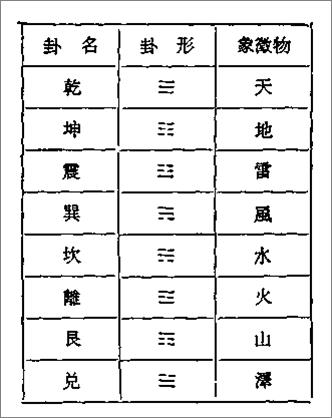 卦名 卦形 象徵物
乾 ☰ 天
坤 ☷ 地
震 ☳ 雷
巽 ☴ 風
坎 ☵ 水
離 ☲ 火
艮 ☶ 山
兌 ☱ 澤